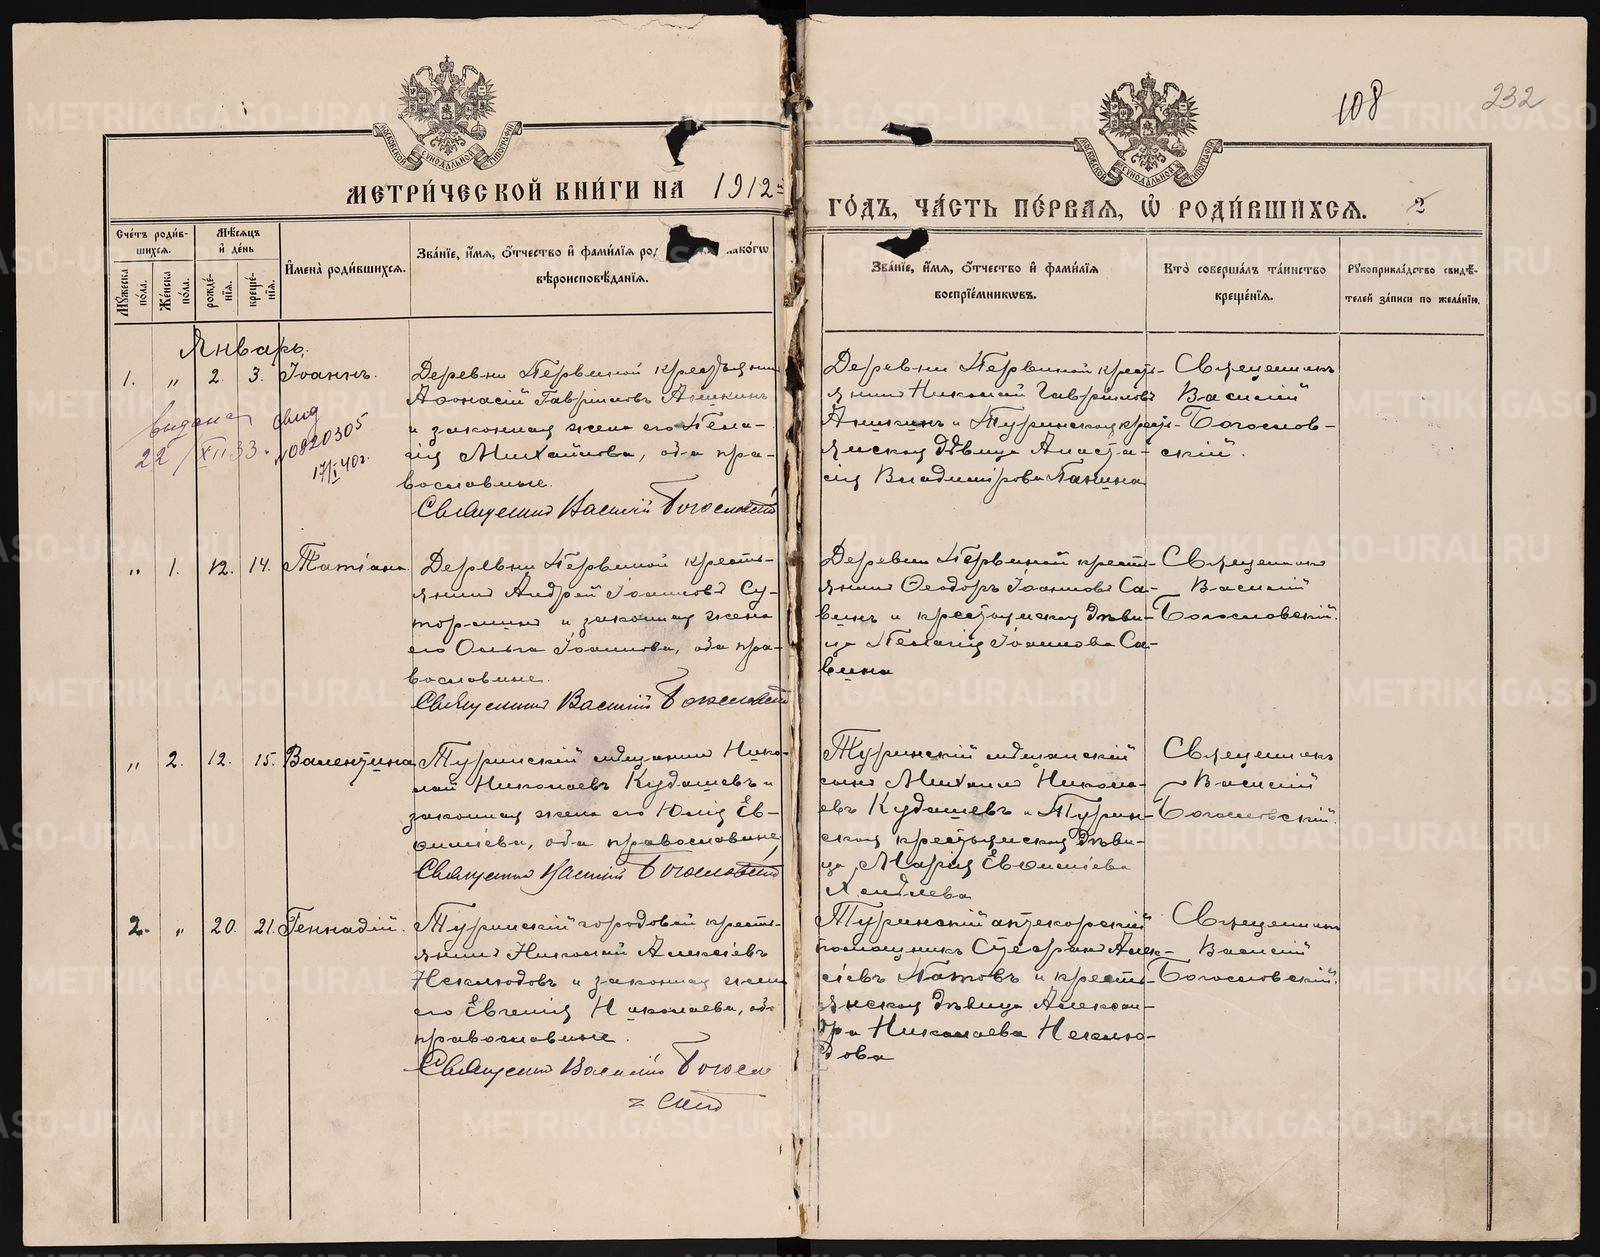 108
232
МОСКОВСКОЙ СѴНОДАЛЬНОЙ ТИПОГРАФІИ
МОСКОВСКОЙ СѴНОДАЛЬНОЙ ТИПОГРАФІИ
МЕТРИ́ЧЕСКОЙ КНИ́ГИ НА 1912
ГО́ДЪ, ЧА́СТЬ ПЕ́РВАЯ, Ѡ҆ РОДИ́ВШИХСЯ. 2
Сче́тъ роди́в-
шихся.
Мѹ́жеска по́ла.
Же́нска по́ла.
Мѣ́сяцъ
и҆ де́нь
рожде́-
нїя.
креще́-
нїя.
И҆мена̀ роди́вшихся.
Зва́нїе, и҆́мя, ѻ҆́тчество и҆ фами́лїя ро
akóгѡ
вѣроисповѣ́данїя.
Зва́нїе, и҆́мя, ѻ҆́тчество и҆ фами́лїя
воспрїе́мникѡвъ.
Кто̀ соверша́лъ та́инство
креще́нїя.
Рѹкоприкла́дство свидѣ́-
телей за́писи по жела́нїю.
Январь.
1. „ 2. 3. Іоаннъ.
Деревни Первиной крестьянинъ
Аѳонасій Гавріиловъ Аникинъ
и законная жена его Пела-
гія Михайлова, оба пра-
вославные.
Священникъ Василій Богословскій
Деревни Первиной кресть-
янинъ Николай Гавріиловъ
Аникинъ и Туринская кресть-
янская дѣвица Анаста-
сія Владимірова Панина
Священникъ
Василій
Богослов-
скій.
выдана свид
22/XII 33. № 0820305
17/I 40г.
„ 1. 12. 14. Татіана
Деревни Первиной кресть-
янинъ Андрей Іоанновъ Су-
торминъ и законная жена
его Ольга Іоаннова, оба пра-
вославные.
Священникъ Василій Богословскій
Деревни Первиной кресть-
янинъ Ѳеодоръ Іоанновъ Са-
винъ и крестьянская дѣви-
ца Пелагія Іоаннова Са-
вина
Священникъ
Василій
Богословскій.
„ 2. 12. 15. Валентина
Туринскій мѣщанинъ Нико-
лай Николаевъ Кудашевъ и
законная жена его Юлія Ев-
ѳиміева, оба православные
Священникъ Василій Богословскій
Туринскій мѣщанскій
сынъ Михаилъ Никола-
евъ Кудашевъ и Турин-
ская крестьянская дѣви-
ца Марія Евѳиміева
Священникъ
Василій
Богословскій.
2. „ 20. 21. Геннадій.
Туринскій городовой кресть-
янинъ Николай Алексіевъ
Неклюдовъ и законная жена
его Евгенія Николаева, оба
православные.
Священникъ Василій Богосло
вскій
Туринскій аптекарскій
помощникъ Стефанъ Алек-
сіевъ Патовъ и кресть-
янская дѣвица Алексан-
дра Николаева Неклю-
дова
Священникъ
Василій
Богословскій.
METRIKI.GASO-URAL.RU